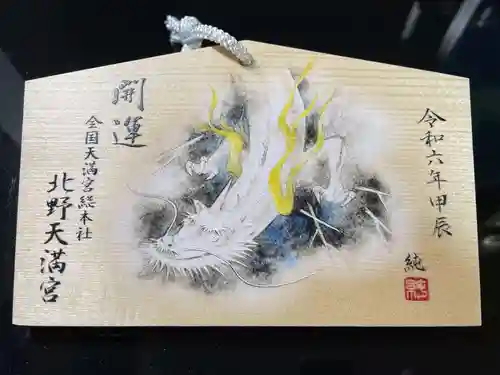 令和六年甲辰
純
開運
全国天満宮総本社
北野天満宮